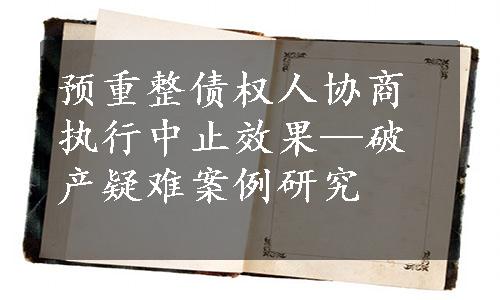 预重整债权人协商
执行中止效果—破
产疑难案例研究